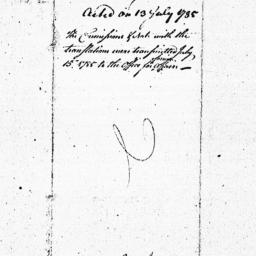 Acted on 13 July 1785
the Comissions & Acts with the
translations were transmitted July
15th 1785 to the Office for foreign
Affairs —